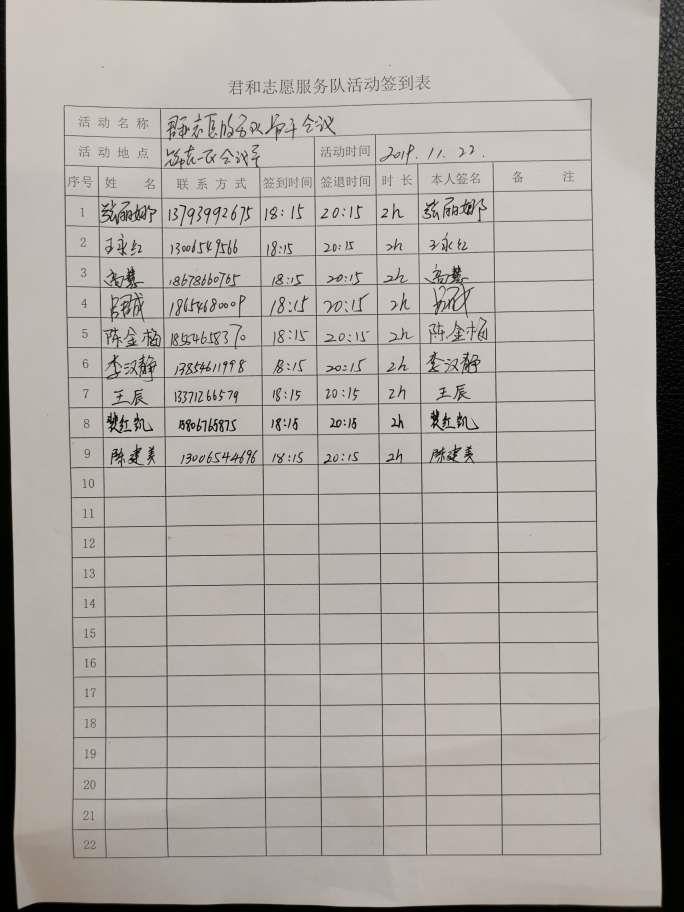 君和志愿服务队活动签到表
活动名称 君和志愿服务队骨干会议
活动地点 会议室 活动时间 2019.11.22.
序号 姓名 联系方式 签到时间 签退时间 时长 本人签名 备注
1 张丽娜 13793992675 18:15 20:15 2h 张丽娜
2 王永红 13006549566 18:15 20:15 2h 王永红
3 高慧 18678660765 18:15 20:15 2h 高慧
4 18654680009 18:15 20:15 2h
5 陈金梅 18554658370 18:15 20:15 2h 陈金梅
6 李汉静 13854611998 18:15 20:15 2h 李汉静
7 王辰 13371266579 18:15 20:15 2h 王辰
8 樊红凯 15806768875 18:15 20:15 2h 樊红凯
9 陈建美 13006544696 18:15 20:15 2h 陈建美
10
11
12
13
14
15
16
17
18
19
20
21
22